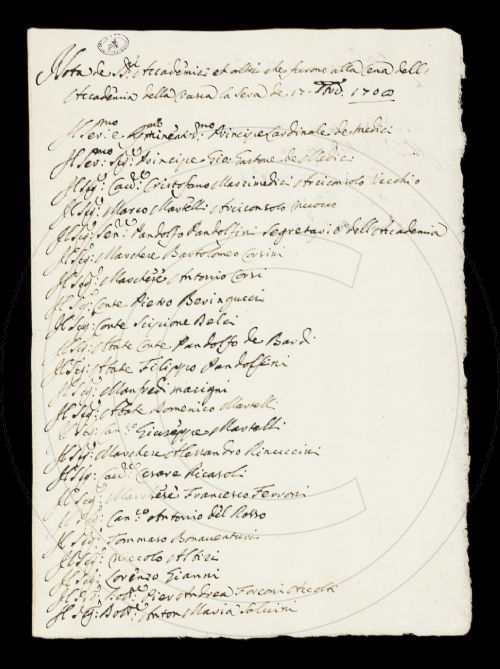 Nota de SSri Accademici et altri che furono alla Cena dell
Accademia della Crusca la Sera de 17. 1700
Il Sermo e Eminentmo Principe Cardinale de Medici
Il Sermo Sigr: Principe Gio: Gastone de Medici
Il Sigr: Cavre Cristofano Marzimedici Arciconsolo Vecchio
Il Sigr: Marco Martelli Arciconsolo Nuovo
Il Sigr: Senre: Pandolfo Pandolfini Segretario dell Accademia
Il Sigr: Marchese Bartolomeo Corsini
Il Sigr: Marchese Antonio Corsi
Il Sigr: Conte Pietro Bevingucci
Il Sigr: Conte Scipione Belci
Il Sigr: Abate Conte Pandolfo de Bardi
Il Sigr: Abate Filippo Pandolfini
Il Sigr: Manfredi macigni
Il Sigr: Abate Domenico Martelli
Il Sigr: Canco Giuseppe Martelli
Il Sigr: Marchese Alessandro Rinuccini
Il Sigr: Cavre Cesare Ricasoli
Il Sigr: Marchese Francesco Ferroni
Il Sigr: Canco Antonio del Rosso
Il Sigr: Tommaso Bonaventuri
Il Sigr: Niccolo Albizi
Il Sigr: Lorenzo Gianni
Il Sigr: Dotre Pier Andrea Forzoni Accolti
Il Sigr: Dotre Anton Maria Salvini